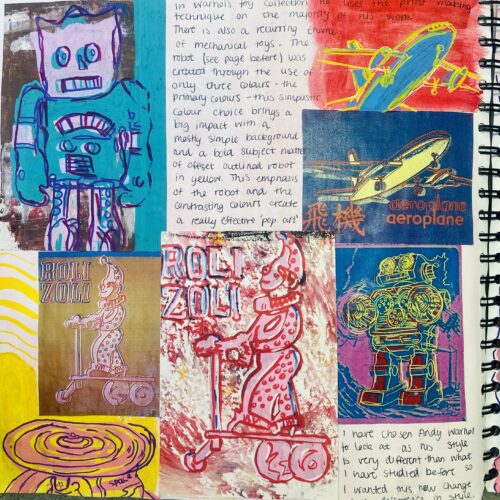 in Warhol's Toy Collection he uses the print making
technique on the majority of his work.
There is also a recurring theme
of mechanical toys. The
robot (see page before) was
created through the use of
only three colours - the
primary colours - this simplistic
colour choice brings a
big impact with a
mostly simple background
and a bold subject matter
of offset outlined robot
in yellow. This emphasis
of the robot and the
contrasting colours create
a really effective 'pop art'
aeroplane
飛機 aeroplane
ROLI
ZOLI
ROLI
ZOLI
I have chosen Andy Warhol
to look at as his style
is very different than what
I have studied before so
I wanted this new change
in style.